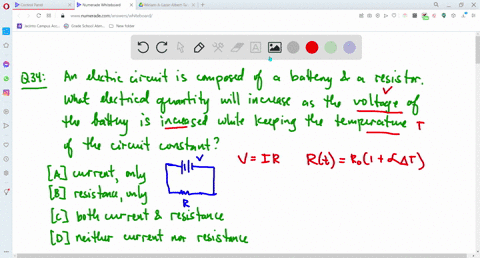 Control Panel
Numerade Whiteboard
www.numerade.com/answers/whiteboard/
Q.34: An electric circuit is composed of a battery & a resistor.
What electrical quantity will increase as the voltage of V
the battery is increased while keeping the temperature T
of the circuit constant?
[A] current, only
[B] resistance, only
[C] both current & resistance
[D] neither current nor resistance
V
R
V = IR
R(t) = R₀(1 + αΔT)